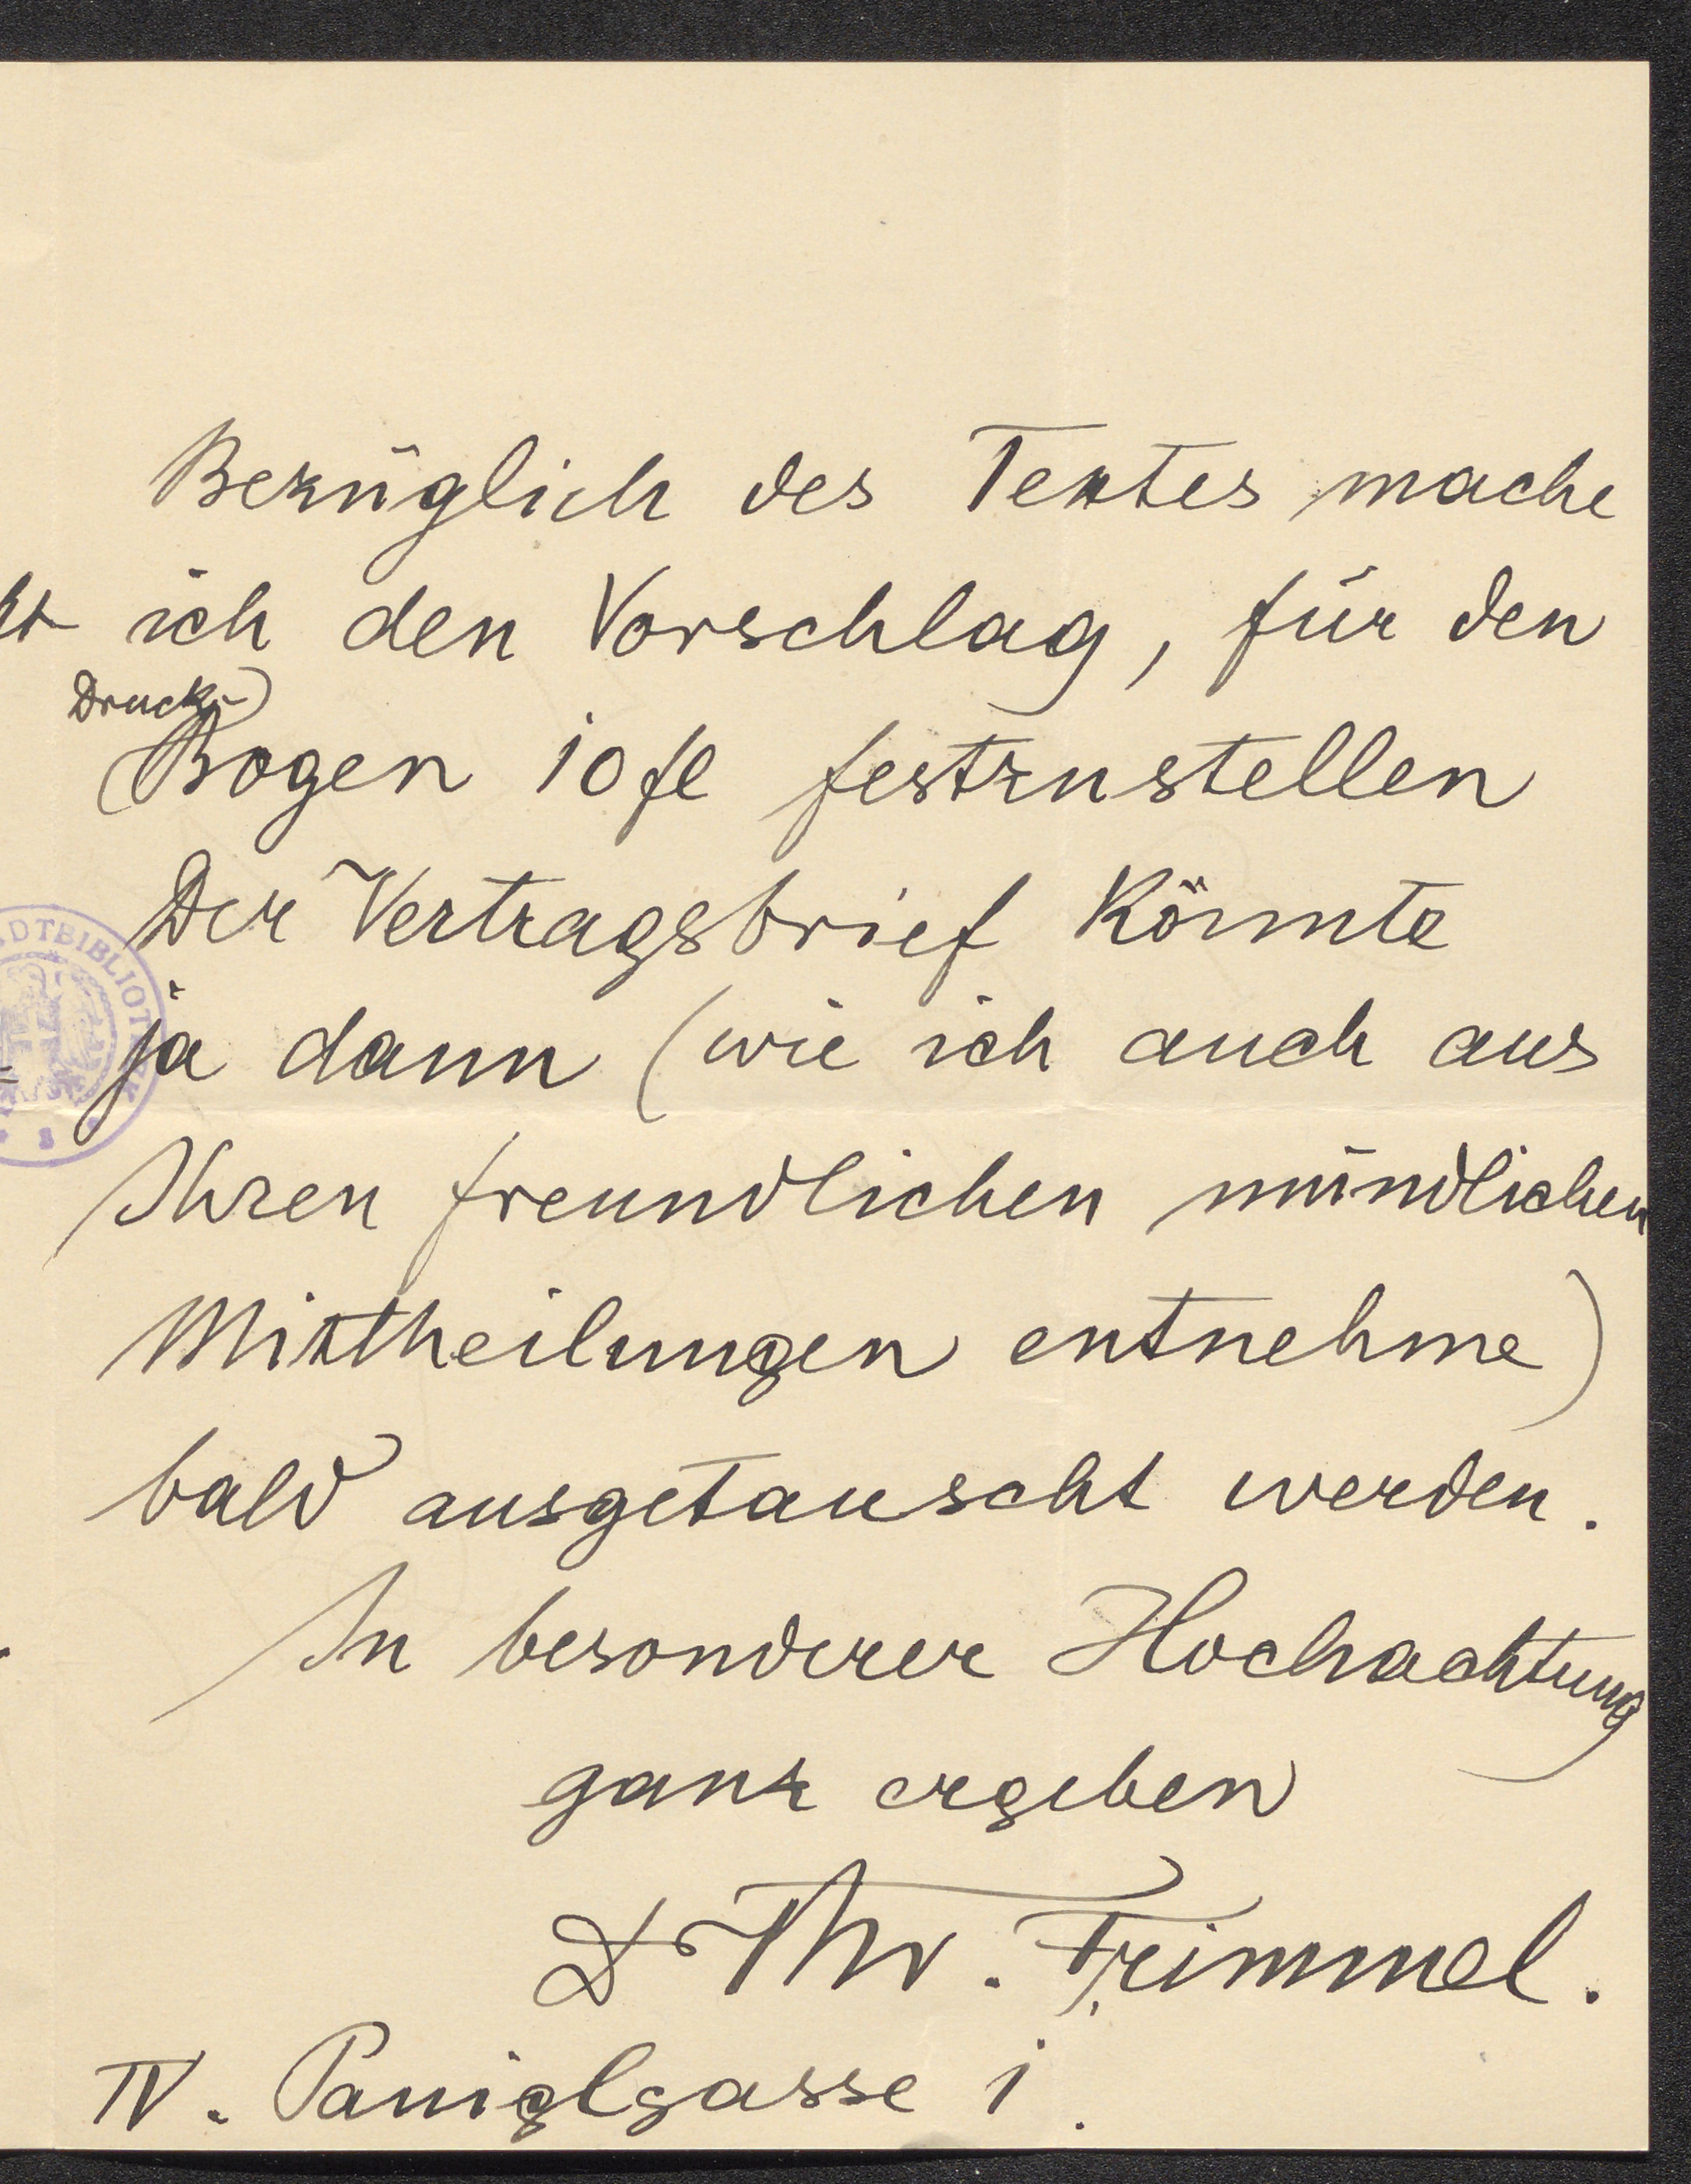 Bezüglich des Textes mache
ich den Vorschlag, für den
Druck-
Bogen 10 fl festzustellen
Der Vertragsbrief könnte
ja dann (wie ich auch aus
Ihren freundlichen mündlichen
Mittheilungen entnehme)
bald ausgetauscht werden.
In besonderer Hochachtung
ganz ergeben
Dr Thv. Frimmel.
IV. Paniglgasse 1.